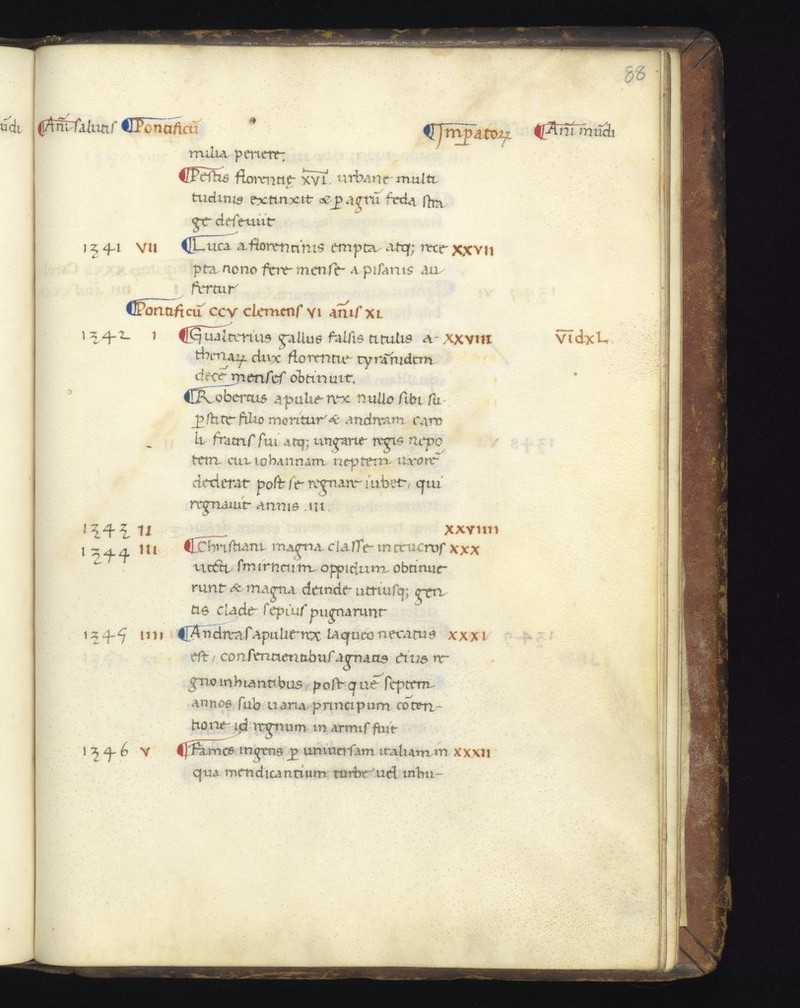 88
ūdi
Añi salutis Pontificū Imꝑatoꝝ Añi mūdi
milia periere;
Pestis florentię XVI. urbane multi
tudinis extinxit & ꝑ agrū feda stra
ge deseuiit
1341 VII Luca a florentinis empta atq; rece XXVII
pta nono fere mense a pisanis au
fertur
Pontificū CCV clemens VI añis XI
1342 I Gualterius gallus falsis titulis a- XXVIII VIdXL
thenaꝝ dux florentie tyrānidem
decē menses obtinuit.
Robertus apulie rex nullo sibi su-
ꝑstite filio moritur & andream caro
li fratris sui atq; ungarie regis nepo
tem cui iohannam neptem uxorē
dederat post se regnare iubet, qui
regnauit annis .III.
1343 II XXVIIII
1344 III Christiani magna classe in teucros XXX
uecti smirneum oppidum obtinue
runt & magna deinde utriusq; gen
tis clade sepius pugnarunt
1345 IIII Andreas apulie rex laqueo necatus XXXI
est, consentientibus agnatis eius re
gno inhiantibus, post quē septem
annos sub uaria principum cōten-
tione id regnum in armis fuit
1346 V Fames ingens ꝑ uniuersam italiam in XXXII
qua mendicantium turbe uel inhu-